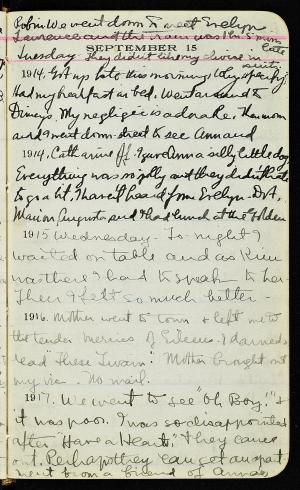 Robin We went down to meet Evelyn
Lawrence and the train was 1 hr. 5 min late
SEPTEMBER 15
Tuesday. They didn't like my
1914. Got up late this morning
Had my breakfast in bed. Went around to
My negligee is adorable. Then mom
and I went down street to see Anna and
1914. Catharine ff. I gave Anna a silly little dog
Everything was so jolly and they didn't hate
to go a bit. I haven't heard from Evelyn.
Marion Augusta and I had lunch at the Golden
1915 Wednesday. To-night I
waited on table and as Kim
was there I had to speak to her.
Then I felt so much better -
1916. Mother went to town & left me to
the tender mercies of Eileens. I darned &
read "These Twain". Mother brought out
my vic. No mail.
1917. We went to see "Oh Boy!" &
it was poor. I was so disappointed
after "Have a Heart". They came
out. Perhaps they can get an apart
went from a friend of Anna's